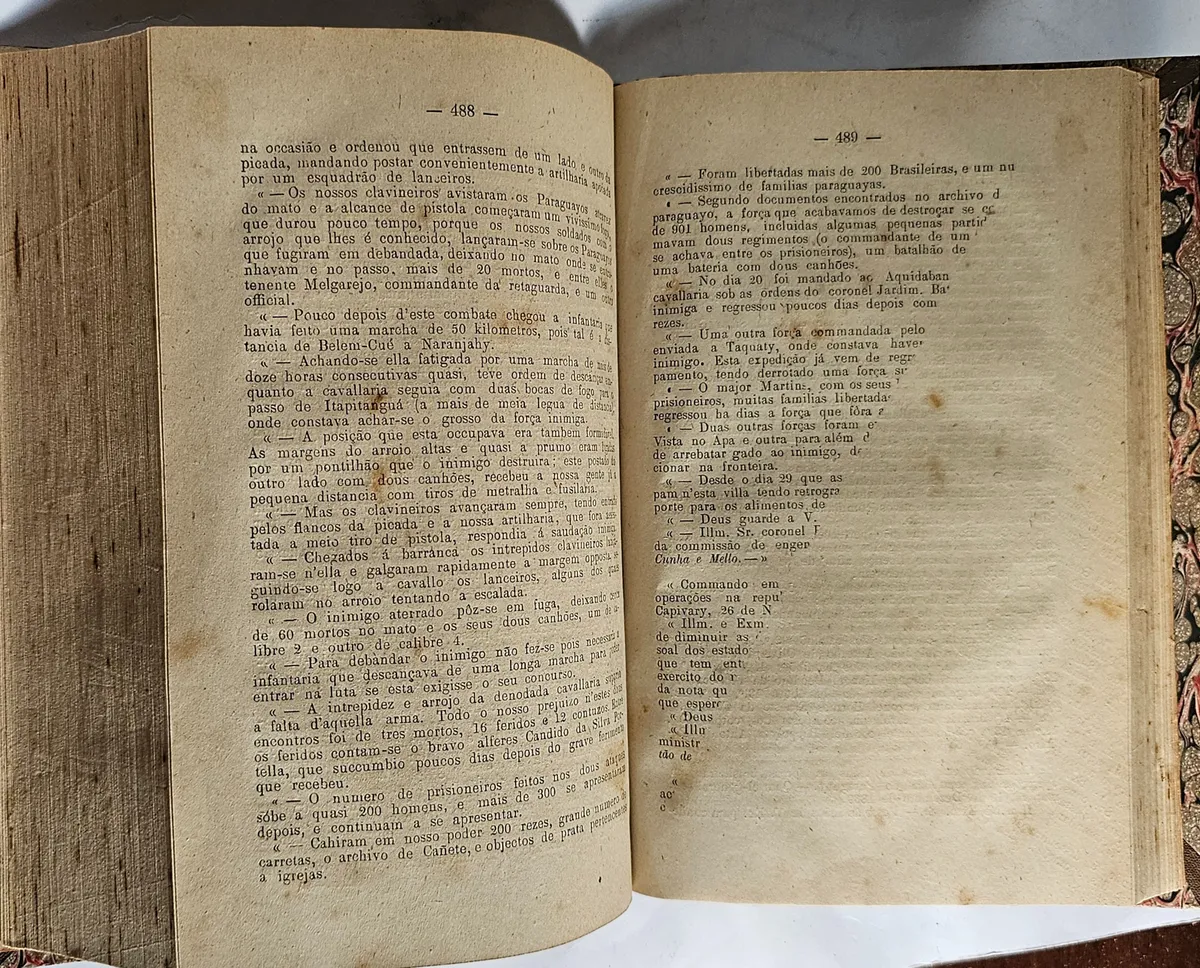 — 488 —
na occasião e ordenou que entrassem de um lado e outro da
picada, mandando postar convenientemente a artilharia apoiada
por um esquadrão de lanceiros.
« — Os nossos clavineiros avistaram os Paraguayos
do mato e a alcance de pistola começaram um vivissimo fogo,
que durou pouco tempo, porque os nossos soldados com o
arrojo que lhes é conhecido, lançaram-se sobre os Paraguayos
que fugiram em debandada, deixando no mato onde se
nhavam e no passo, mais de 20 mortos, e entre elles o
tenente Melgarejo, commandante da retaguarda, e um outro
official.
« — Pouco depois d'este combate chegou a infantaria que
havia feito uma marcha de 50 kilometros, pois tal é a dis-
tancia de Belem-Cué a Naranjahy.
« — Achando-se ella fatigada por uma marcha de mais de
doze horas consecutivas quasi, teve ordem de descançar en-
quanto a cavallaria seguia com duas bocas de fogo para o
passo de Itapitanguá (a mais de meia legua de distancia),
onde constava achar-se o grosso da força inimiga.
« — A posição que esta occupava era tambem formidavel.
As margens do arroio altas e quasi a prumo eram
por um pontilhão que o inimigo destruira; este postado do
outro lado com dous canhões, recebeu a nossa gente já a
pequena distancia com tiros de metralha e fusilaria.
« — Mas os clavineiros avançaram sempre, tendo entrado
pelos flancos da picada e a nossa artilharia, que fora
tada a meio tiro de pistola, respondia á saudação inimiga.
« — Chegados á barranca os intrepidos clavineiros
ram-se n'ella e galgaram rapidamente a margem opposta, se-
guindo-se logo a cavallo os lanceiros, alguns dos quaes
rolaram no arroio tentando a escalada.
« — O inimigo aterrado pôz-se em fuga, deixando cerca
de 60 mortos no mato e os seus dous canhões, um de ca-
libre 2 e outro de calibre 4.
« — Para debandar o inimigo não fez-se pois necessaria a
infantaria que descançava de uma longa marcha para poder
entrar na luta se esta exigisse o seu concurso.
« — A intrepidez e arrojo da denodada cavallaria
a falta d'aquella arma. Todo o nosso prejuizo n'estes dous
encontros foi de tres mortos, 16 feridos e 12 contuzos. Entre
os feridos contam-se o bravo alferes Candido da Silva Por-
tella, que succumbio poucos dias depois do grave ferimento
que recebeu.
« — O numero de prisioneiros feitos nos dous ataques
sóbe a quasi 200 homens, e mais de 300 se apresentaram
depois, e continuam a se apresentar.
« — Cahiram em nosso poder 200 rezes, grande numero de
carretas, o archivo de Cañete, e objectos de prata pertencentes
a igrejas.
— 489 —
« — Foram libertadas mais de 200 Brasileiras, e um nu
crescidissimo de familias paraguayas.
« — Segundo documentos encontrados no archivo d
paraguayo, a força que acabavamos de destroçar se
de 901 homens, incluidas algumas pequenas parti
mavam dous regimentos (o commandante de um
se achava entre os prisioneiros), um batalhão de
uma bateria com dous canhões.
« — No dia 20 foi mandado ao Aquidaban
cavallaria sob as ordens do coronel Jardim. Ba
inimiga e regressou poucos dias depois com
rezes.
« — Uma outra força commandada pelo
enviada a Taquaty, onde constava haver
inimigo. Esta expedição já vem de regr
pamento, tendo derrotado uma força
« — O major Martins, com os seus
prisioneiros, muitas familias libertada
regressou ha dias a força que fôra
« — Duas outras forças foram
Vista no Apa e outra para além d
de arrebatar gado ao inimigo, de
cionar na fronteira.
« — Desde o dia 29 que as
pam n'esta villa tendo retrogra
porte para os alimentos de
« — Deus guarde a V.
« — Illm. Sr. coronel
da commissão de enger
Cunha e Mello. — »
« Commando em
operações na repu
Capivary, 26 de N
« Illm. e Exm.
de diminuir as
soal dos estado
que tem ent
exercito do
da nota qu
que esper
« Deus
« Illu
ministr
tão de
«
ac
c